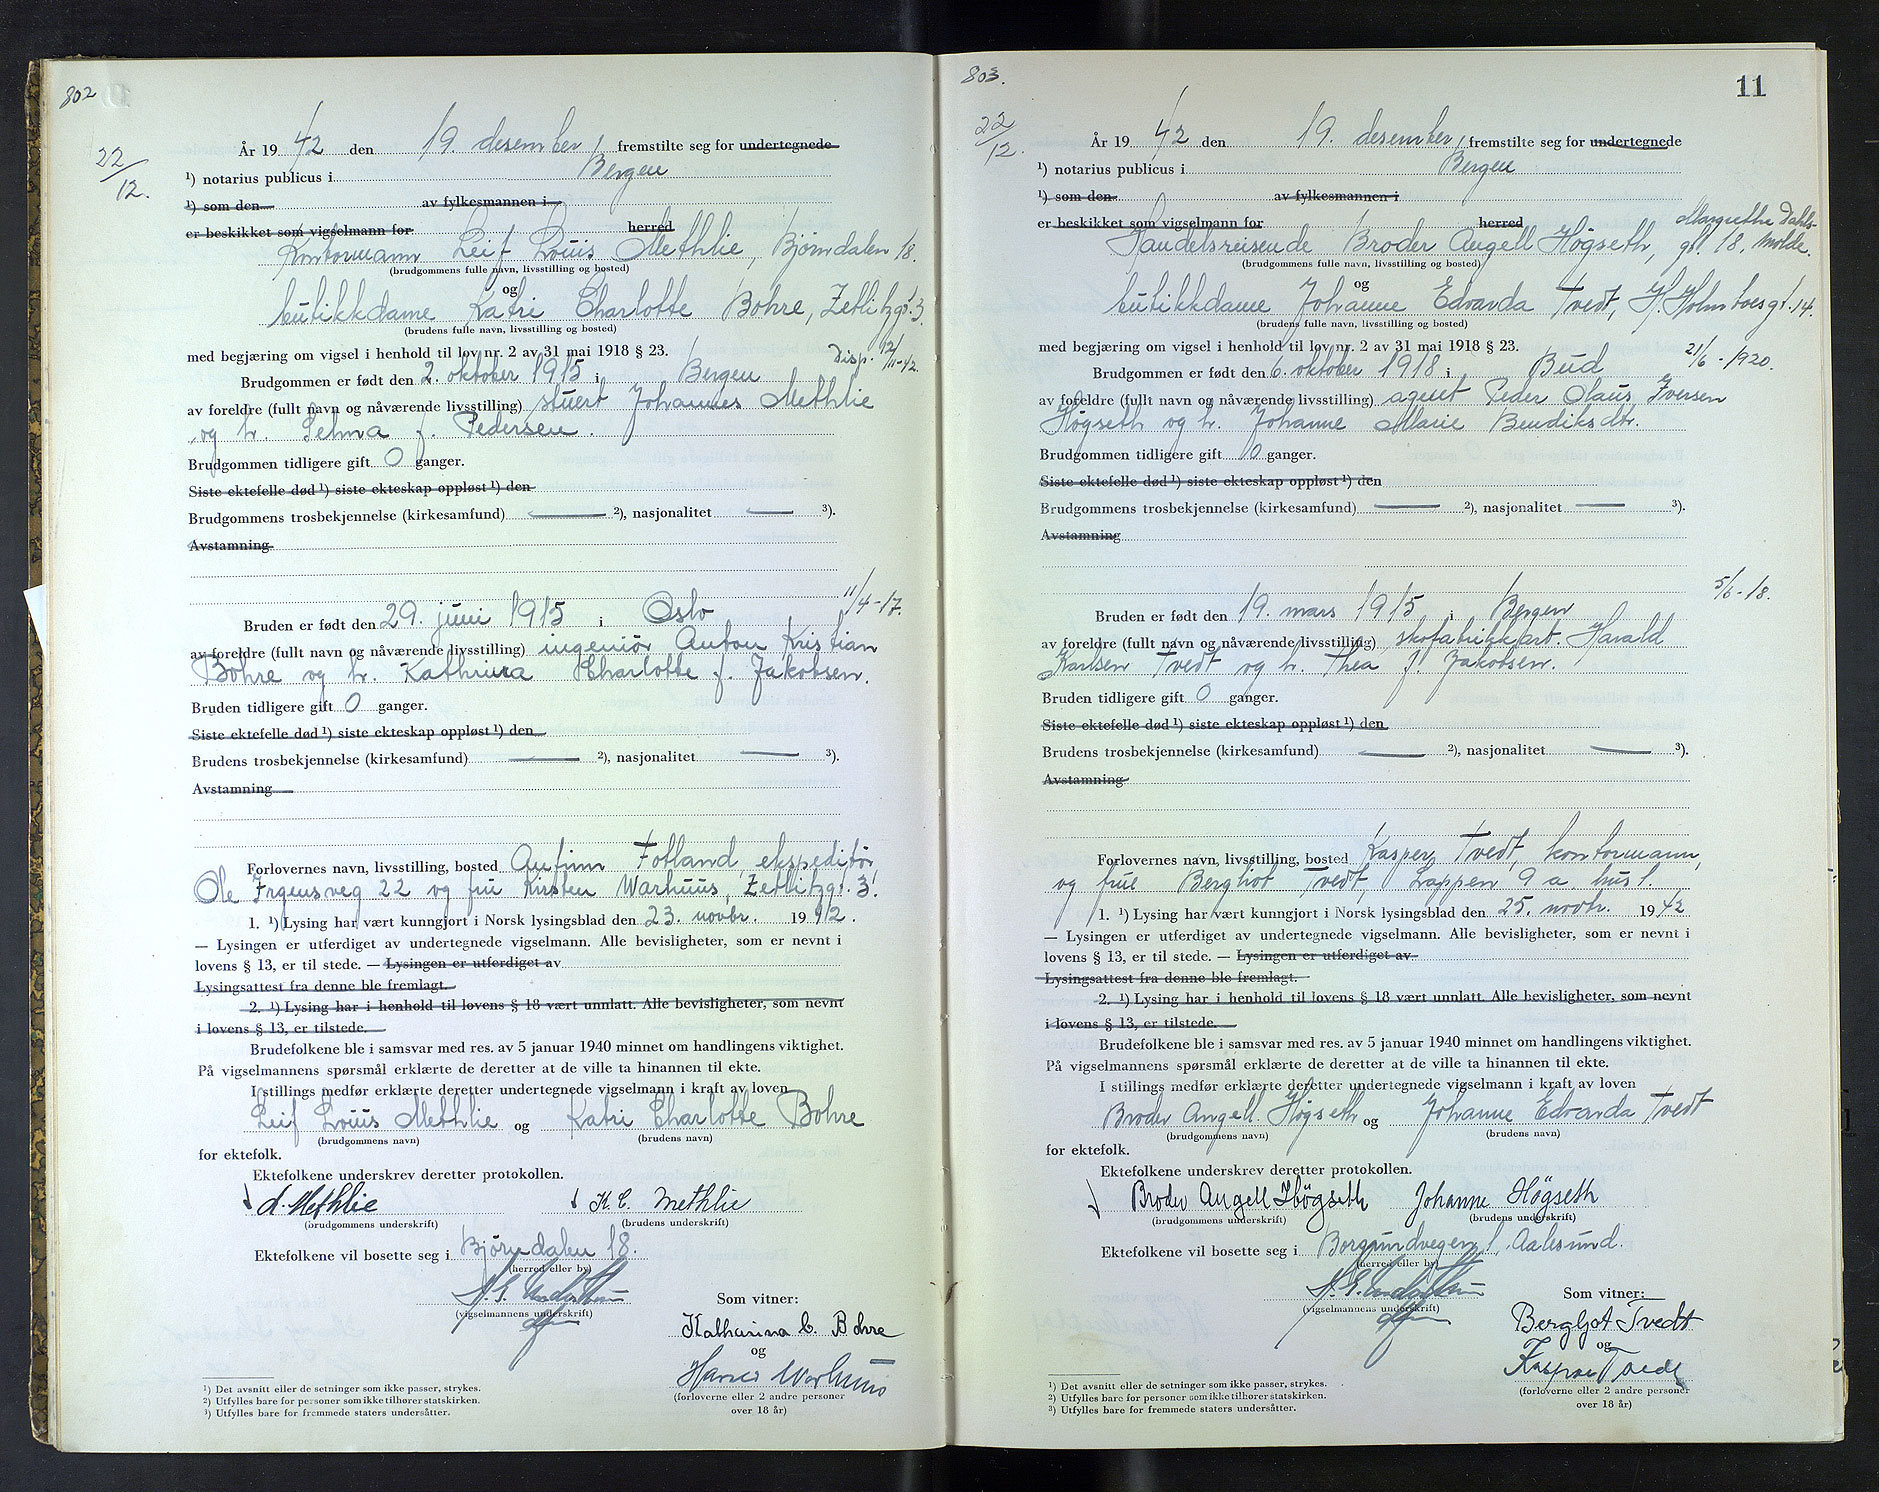 802
22/12.
År 19 42 den 19. desember, fremstilte seg for undertegnede
¹) notarius publicus i Bergen
¹) som den av fylkesmannen i
er beskikket som vigselmann for herred
Kontormann Leif Louis Methlie, Bjørndalen 18.
(brudgommens fulle navn, livsstilling og bosted)
og
butikkdame Katri Charlotte Bohre, Zetlitzgt. 3.
(brudens fulle navn, livsstilling og bosted)
med begjæring om vigsel i henhold til lov nr. 2 av 31 mai 1918 § 23. Disp. 12/11-42.
Brudgommen er født den 2. oktober 1915 i Bergen
av foreldre (fullt navn og nåværende livsstilling) stuert Johannes Methlie
og h. Selma f. Pedersen.
Brudgommen tidligere gift 0 ganger.
Siste ektefelle død ¹) siste ekteskap oppløst ¹) den
Brudgommens trosbekjennelse (kirkesamfund) — ²), nasjonalitet — ³).
Avstamning
11/4-17.
Bruden er født den 29. juni 1915 i Oslo
av foreldre (fullt navn og nåværende livsstilling) ingeniör Anton Kristian
Bohre og h. Kathrina Charlotte f. Jakobsen.
Bruden tidligere gift 0 ganger.
Siste ektefelle død ¹) siste ekteskap oppløst ¹) den
Brudens trosbekjennelse (kirkesamfund) — ²), nasjonalitet — ³).
Avstamning
Forlovernes navn, livsstilling, bosted Anfinn Fotland, ekspeditör
Ole Irgensveg 22 og fru Kirsten Warhuus, Zetlitzgt. 3.
1. ¹) Lysing har vært kunngjort i Norsk lysingsblad den 23. novbr. 19 42.
— Lysingen er utferdiget av undertegnede vigselmann. Alle bevisligheter, som er nevnt i
lovens § 13, er til stede. — Lysingen er utferdiget av
Lysingsattest fra denne ble fremlagt.
2. ¹) Lysing har i henhold til lovens § 18 vært unnlatt. Alle bevisligheter, som nevnt
i lovens § 13, er tilstede.
Brudefolkene ble i samsvar med res. av 5 januar 1940 minnet om handlingens viktighet.
På vigselmannens spørsmål erklærte de deretter at de ville ta hinannen til ekte.
I stillings medfør erklærte deretter undertegnede vigselmann i kraft av loven
Leif Louis Methlie og Katri Charlotte Bohre
(brudgommens navn) (brudens navn)
for ektefolk.
Ektefolkene underskrev deretter protokollen.
L. Methlie K. C. Methlie
(brudgommens underskrift) (brudens underskrift)
Ektefolkene vil bosette seg i Bjørndalen 18.
(herred eller by)
(vigselmannens underskrift)
Som vitner:
Katharina C. Bohre
og
Warhuus
(forloverne eller 2 andre personer
over 18 år)
¹) Det avsnitt eller de setninger som ikke passer, strykes.
²) Utfylles bare for personer som ikke tilhører statskirken.
³) Utfylles bare for fremmede staters undersåtter.
803.
11
22/12.
År 19 42 den 19. desember, fremstilte seg for undertegnede
¹) notarius publicus i Bergen
¹) som den av fylkesmannen i
er beskikket som vigselmann for herred
Handelsreisende Broder Angell Högseth, Margrethe Dahls-
gt. 18. Molde.
(brudgommens fulle navn, livsstilling og bosted)
og
butikkdame Johanne Edvarda Tvedt, H. Holmboesgt. 14.
(brudens fulle navn, livsstilling og bosted)
med begjæring om vigsel i henhold til lov nr. 2 av 31 mai 1918 § 23. 21/6 - 1920.
Brudgommen er født den 6. oktober 1918 i Bud
av foreldre (fullt navn og nåværende livsstilling) agent Peder Olaus Iversen
Högseth og h. Johanne Marie Bendiksdtr.
Brudgommen tidligere gift 0 ganger.
Siste ektefelle død ¹) siste ekteskap oppløst ¹) den
Brudgommens trosbekjennelse (kirkesamfund) — ²), nasjonalitet — ³).
Avstamning
5/6-18.
Bruden er født den 19. mars 1915 i Bergen
av foreldre (fullt navn og nåværende livsstilling) skofabrikkarb. Harald
Karlsen Tvedt og h. Thea f. Jakobsen.
Bruden tidligere gift 0 ganger.
Siste ektefelle død ¹) siste ekteskap oppløst ¹) den
Brudens trosbekjennelse (kirkesamfund) — ²), nasjonalitet — ³).
Avstamning
Forlovernes navn, livsstilling, bosted Kasper Tvedt, kontormann,
og frue Bergliot Tvedt, Lappen 9 a hus 1.
1. ¹) Lysing har vært kunngjort i Norsk lysingsblad den 25. novbr. 19 42
— Lysingen er utferdiget av undertegnede vigselmann. Alle bevisligheter, som er nevnt i
lovens § 13, er til stede. — Lysingen er utferdiget av
Lysingsattest fra denne ble fremlagt.
2. ¹) Lysing har i henhold til lovens § 18 vært unnlatt. Alle bevisligheter, som nevnt
i lovens § 13, er tilstede.
Brudefolkene ble i samsvar med res. av 5 januar 1940 minnet om handlingens viktighet.
På vigselmannens spørsmål erklærte de deretter at de ville ta hinannen til ekte.
I stillings medfør erklærte deretter undertegnede vigselmann i kraft av loven
Broder Angell Högseth og Johanne Edvarda Tvedt
(brudgommens navn) (brudens navn)
for ektefolk.
Ektefolkene underskrev deretter protokollen.
Broder Angell Högseth Johanne Högseth
(brudgommens underskrift) (brudens underskrift)
Ektefolkene vil bosette seg i Borgundvegen 1, Aalesund.
(herred eller by)
(vigselmannens underskrift)
Som vitner:
Bergljot Tvedt
og
Kasper Tvedt
(forloverne eller 2 andre personer
over 18 år)
¹) Det avsnitt eller de setninger som ikke passer, strykes.
²) Utfylles bare for personer som ikke tilhører statskirken.
³) Utfylles bare for fremmede staters undersåtter.